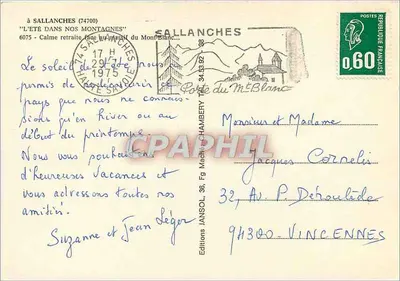 à SALLANCHES (74700)
"L'ETE DANS NOS MONTAGNES"
6075 - Calme retraite
du Mont-Blanc
74 SALLANCHES
17 H
29
1975
HAUTE-SAVOIE
SALLANCHES
Porte du Mt Blanc
POSTES
0,60
REPUBLIQUE FRANÇAISE
Le soleil de l'été nous
permis de
pays que nous ne connais-
sions qu'en hiver ou au
début du printemps.
Nous vous souhaitons
d'heureuses vacances et
vous adressons toutes nos
amitiés.
Suzanne et Jean Léger
Editions JANSOL, 36, Fg Maché - CHAMBERY Tél. 34.53.92
CPARAMA
Monsieur et Madame
Jacques Cornelis
32, Av. P. Déroulède
94300 - VINCENNES